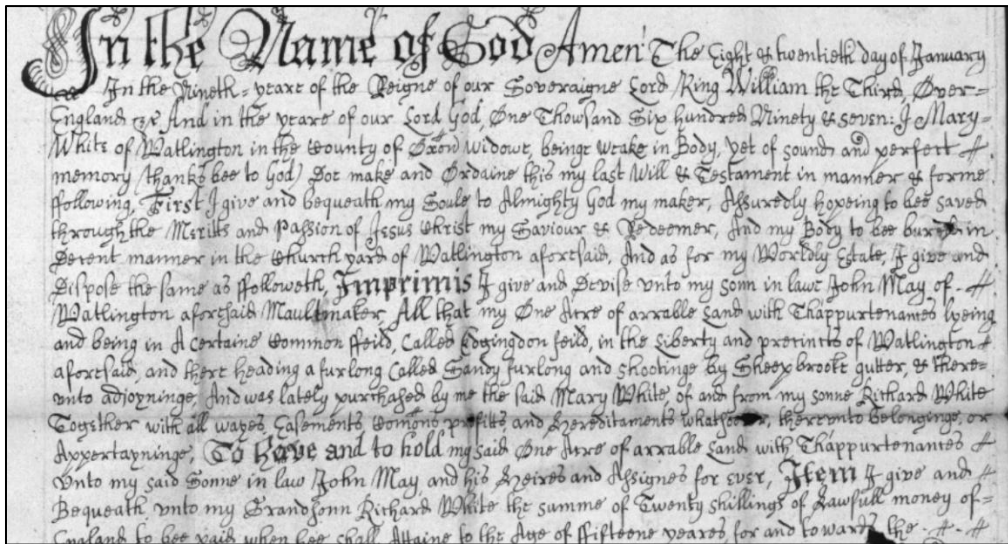 In the Name of God Amen: The Eight & twentieth day of January
In the Nineth = yeare of the Reigne of our Soveraigne Lord King William the Third, Over =
England &c And in the yeare of our Lord God, One Thousand Six hundred Ninety & seven: I Mary =
White of Watlington in the County of Oxon widowe, beinge weake in Body, yet of sound and perfect
memory (thanks bee to God) Doe make and Ordaine this my last Will & Testament in manner & forme
ffollowing, First I give and bequeath my Soule to Almighty God my maker, Assuredly hopeing to bee saved
through the Meritts and Passion of Jesus Christ my Saviour & Redeemer, And my Body to bee buryed in
Decent manner in the Church yard of Watlington aforesaid, And as for my Worldly Estate, I give and
Dispose the same as ffolloweth, Imprimis I give and Devise unto my sonn in lawe John May of -
Watlington aforesaid Maultmaker, All that my One Acre of arrable Land with Thappurtenances lyeing
and being in A certaine Common ffeild, Called feild, in the Liberty and precincts of Watlington
aforesaid, and there heading a furlong Called Sandy furlong and shootinge by Sheepbrooke gutter, & there =
unto adjoyninge, And was lately purchased by me the said Mary White, of and from my sonne Richard White
Together with all wayes, Easements Comons profitts, and Hereditaments whatsoever, thereunto Belonginge, or
Appertayninge, To have and to hold my said One Acre of arrable Land with Thappurtenances
Unto my said Sonne in law John May, and his Heires and Assignes for ever, Item I give and
Bequeath unto my Grandsonn Richard White the summe of Twenty shillings of Lawfull money of =
England to bee paid when hee shall Attaine to the Age of ffifteene yeares, for and towards the